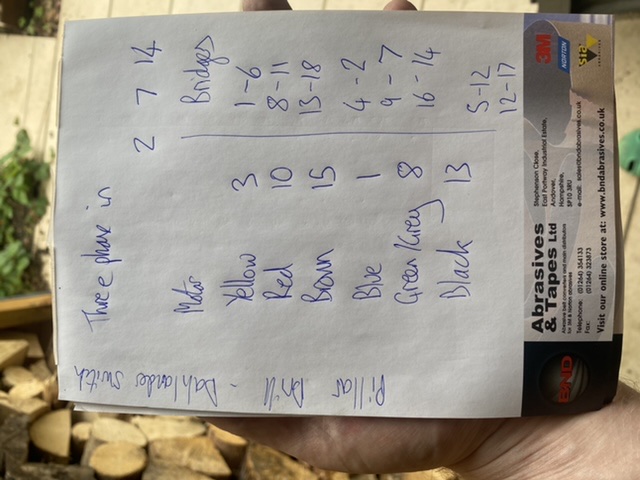 Pillar Drill - Dahlander switch
Three phase in 2 7 14
Motor Bridges
Yellow 3 1-6
Red 10 8-11
Brown 15 13-18
Blue 1 4-2
Green/Grey 8 9-7
Black 13 16-14
5-12
12-17
BND
Abrasives
& Tapes Ltd
Abrasive belt converters and main distributors
for 3M & Norton abrasives
Telephone: (01264) 354133
Fax: (01264) 323873
Stephenson Close,
East Portway Industrial Estate,
Andover,
Hampshire,
SP10 3RU
e-mail: sales@bndabrasives.co.uk
Visit our online store at: www.bndabrasives.co.uk
3M
NORTON
sia